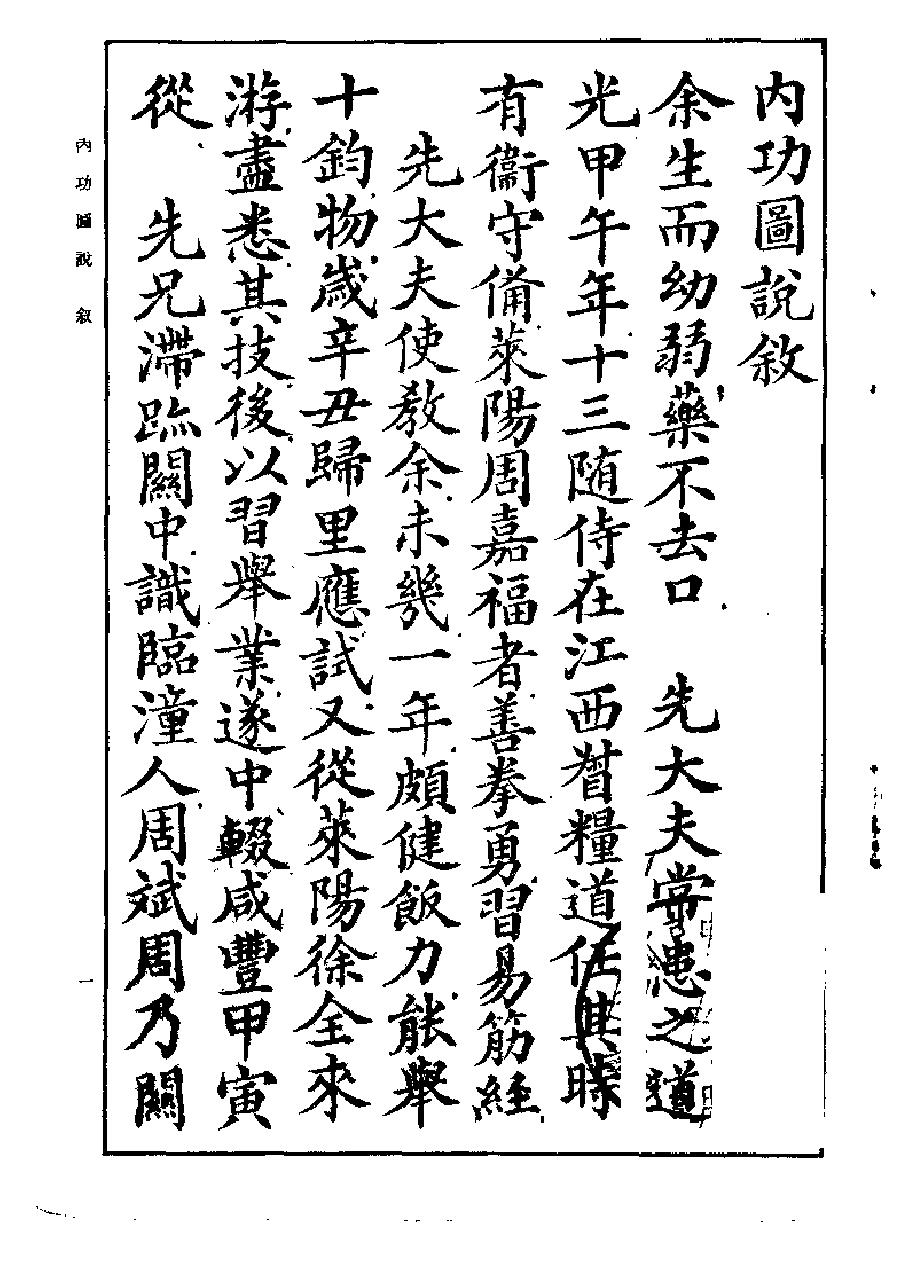 內功圖說敘
余生而幼弱藥不去口　先大夫常患之道
光甲午年十三随侍在江西督糧道任其時
有衞守備萊陽周嘉福者善拳勇習易筋經
先大夫使教余未幾一年頗健飯力能舉
十鈞物歲辛丑歸里應試又從萊陽徐全來
游盡悉其技後以習舉業遂中輟咸豐甲寅
從　先兄滯跡關中識臨潼人周斌周乃關
內功圖說　敘
一